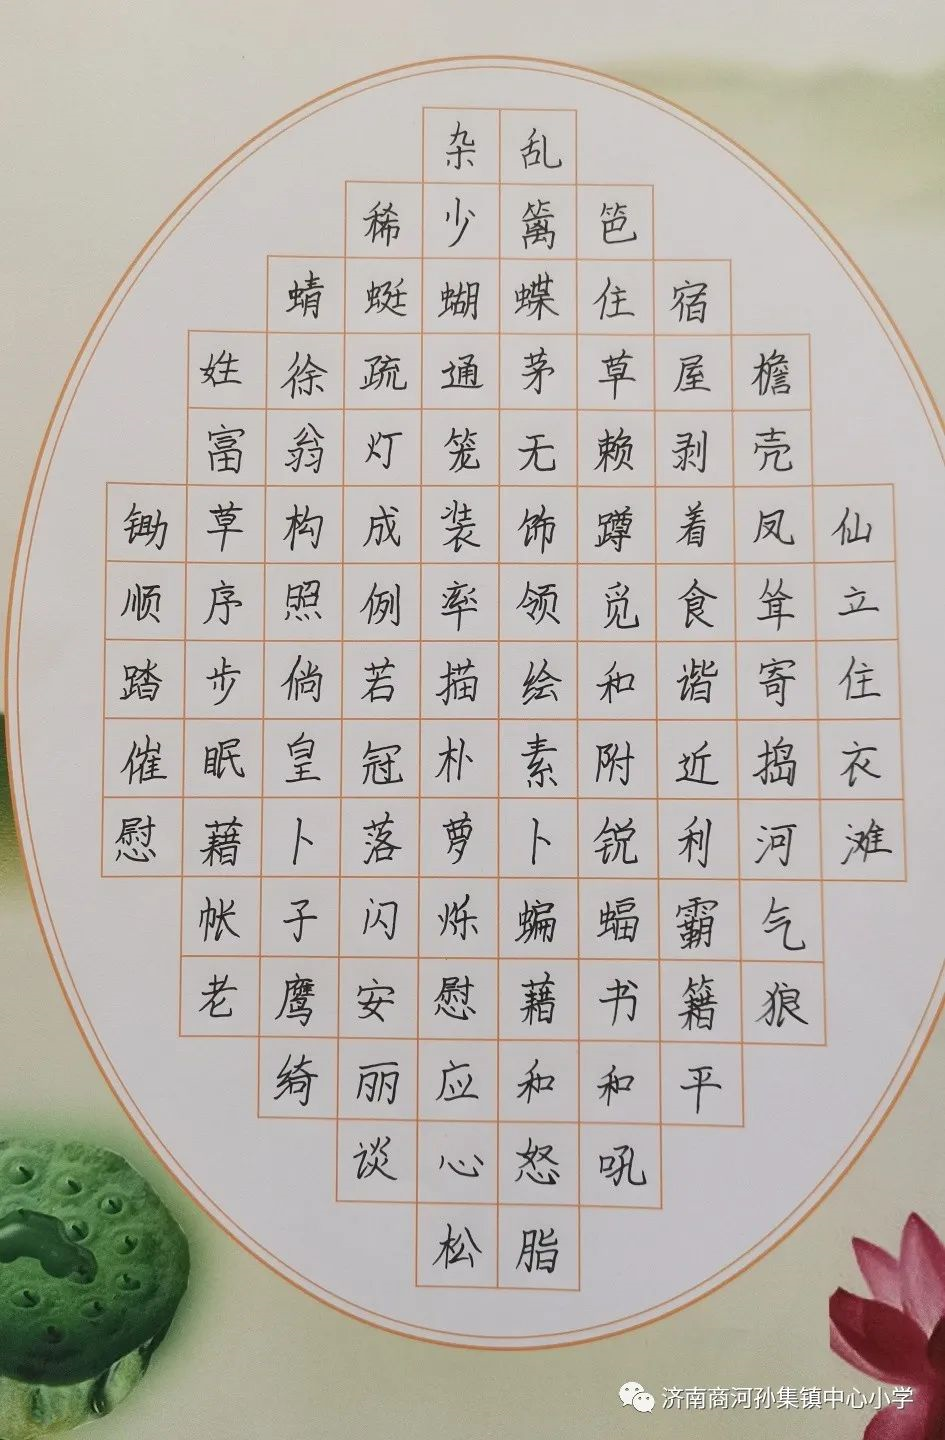 杂乱
稀少篱笆
蜻蜓蝴蝶住宿
姓徐疏通茅草屋檐
富翁灯笼无赖剥壳
锄草构成装饰蹲着凤仙
顺序照例率领觅食耸立
踏步倘若描绘和谐寄住
催眠皇冠朴素附近捣衣
慰藉卜落萝卜锐利河滩
帐子闪烁蝙蝠霸气
老鹰安慰藉书籍狼
绮丽应和和平
谈心怒吼
松脂
济南商河孙集镇中心小学